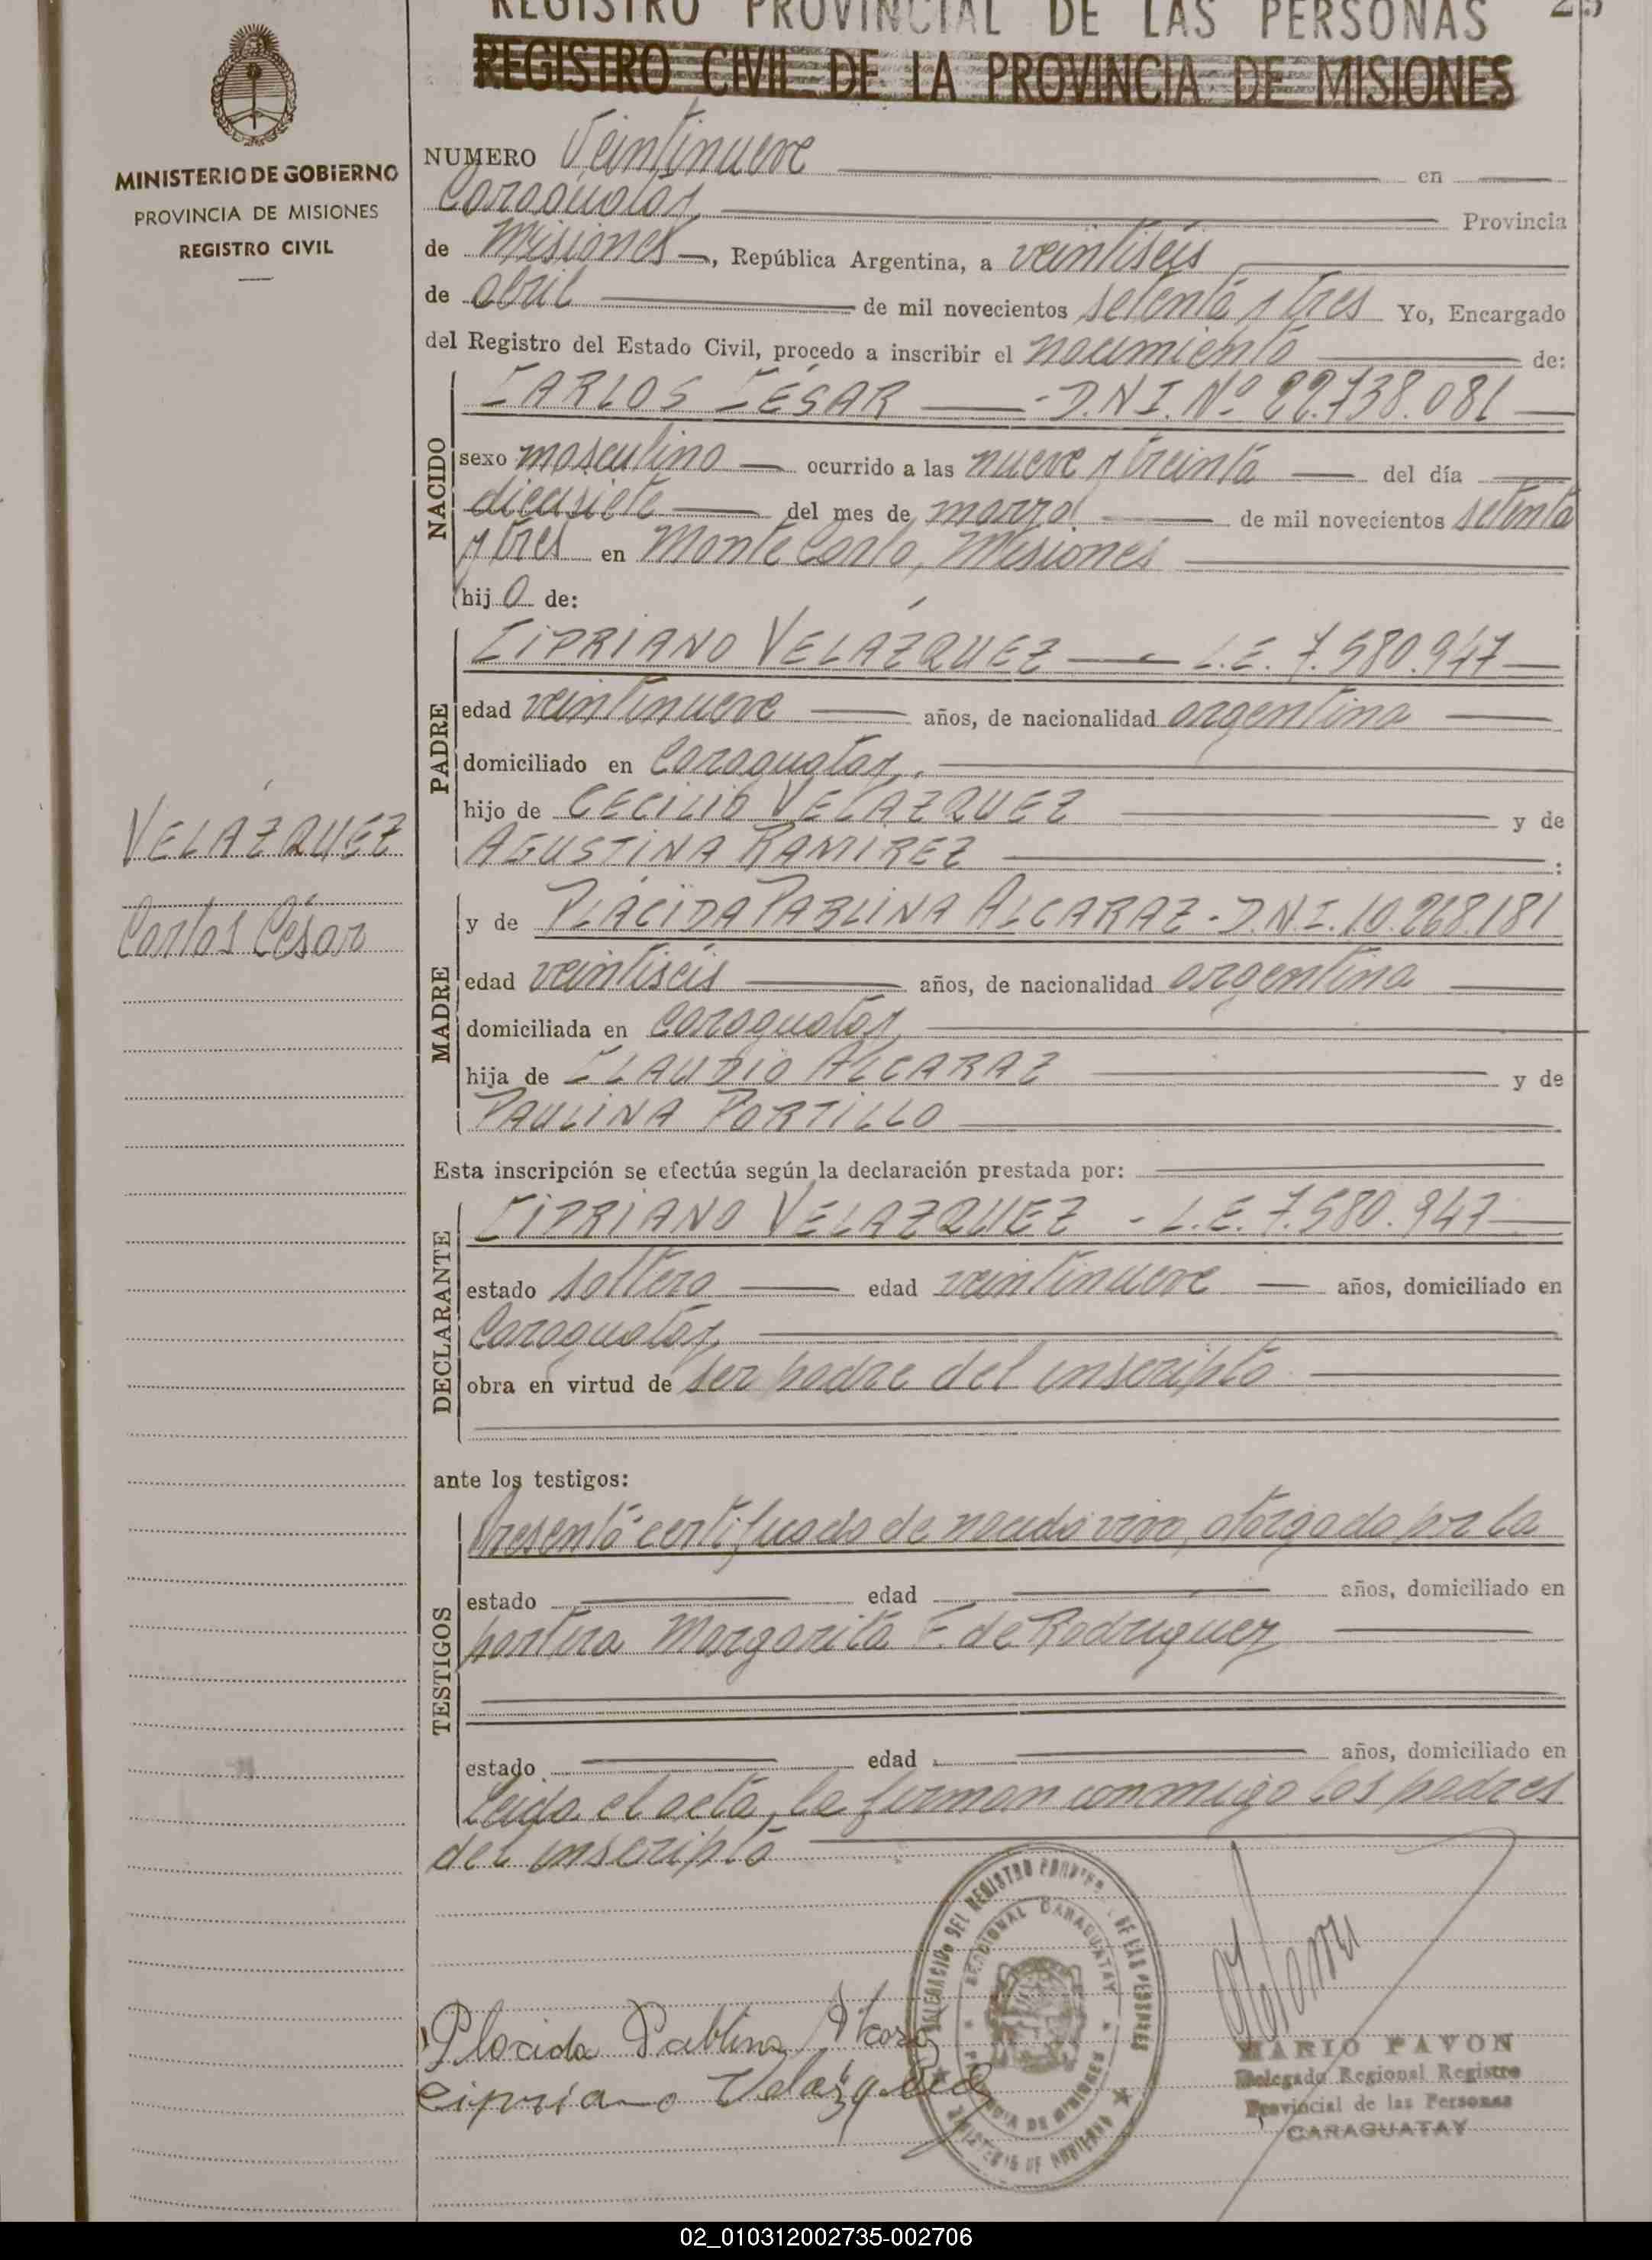 REGISTRO PROVINCIAL DE LAS PERSONAS
REGISTRO CIVIL DE LA PROVINCIA DE MISIONES
MINISTERIO DE GOBIERNO
PROVINCIA DE MISIONES
REGISTRO CIVIL
NUMERO Veintinueve en
Caraguatay Provincia
de Misiones, República Argentina, a veintiséis
de abril de mil novecientos setenta y tres Yo, Encargado
del Registro del Estado Civil, procedo a inscribir el nacimiento de:
NACIDO
CARLOS CÉSAR - D.N.I. Nº 22.738.081
sexo masculino ocurrido a las nueve y treinta del día
diecisiete del mes de marzo de mil novecientos setenta
y tres en Monte Carlo, Misiones
hijo de:
PADRE
CIPRIANO VELÁZQUEZ - L.E. 7.580.947
edad veintinueve años, de nacionalidad argentina
domiciliado en Caraguatay.
hijo de CECILIO VELAZQUEZ y de
AGUSTINA RAMIREZ :
VELÁZQUEZ
Carlos César
MADRE
y de PLÁCIDA PABLINA ALCARAZ - D.N.I. 10.268.181
edad veintiséis años, de nacionalidad argentina
domiciliada en Caraguatay
hija de CLAUDIO ALCARAZ y de
PAULINA PORTILLO
Esta inscripción se efectúa según la declaración prestada por:
DECLARANTE
CIPRIANO VELÁZQUEZ - L.E. 7.580.947
estado soltero edad veintinueve años, domiciliado en
Caraguatay
obra en virtud de ser padre del inscripto
ante los testigos:
TESTIGOS
Presentó certificado de nacido vivo, otorgado por la
estado edad años, domiciliado en
partera Margarita F. de Rodríguez
estado edad años, domiciliado en
Leída el acta, la firman conmigo los padres
del inscripto
DELEGACION DEL REGISTRO PROVINCIAL DE LAS PERSONAS
SECCIONAL CARAGUATAY
PROVINCIA DE MISIONES
MINISTERIO DE GOBIERNO
Placida Pablina Alcaraz
Cipriano Velázquez
MARIO PAVON
Delegado Regional Registro
Provincial de las Personas
CARAGUATAY
02_010312002735-002706